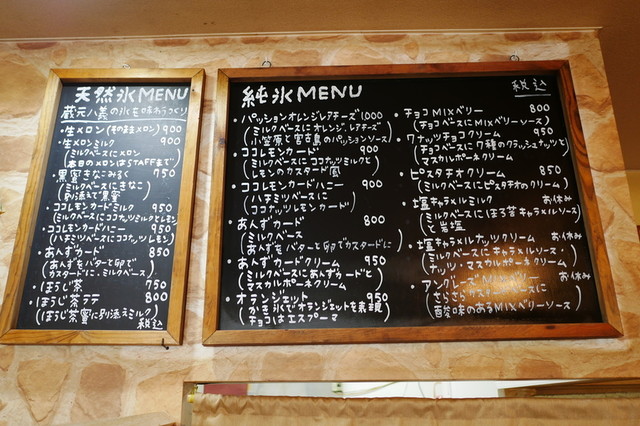 天然氷MENU
蔵元八義の氷を味わうっくり
・生メロン(そのまま×ロン) 900
・生メロンミルク 900
(ミルクベースにメロン)
(本日のメロンはSTAFFまで)
・黒蜜きなこみるく 950
(ミルクベースにきなこ
別添えで黒蜜)
・ココレモンカードミルク 950
(ミルクベースにココナッツミルクとレモン)
・ココレモンカードハニー 950
(ハチミツベースにココナッツレモン)
・あんずカード 850
(あんずをバターと卵で
カスタードに・ミルクベース)
・ほうじ茶 750
・ほうじ茶ラテ 800
(ほうじ茶蜜に別添えミルク)
税込
純氷MENU
税込
・パッションオレンジレアチーズ 1,000
(ミルクベースにオレンジ、レアチーズ
小笠原と宮古島のパッションソース)
・ココレモンカード 900
(ミルクベースにココナッツミルクと
レモンのカスタード風)
・ココレモンカードハニー 900
(ハチミツベースに
ココナッツレモンカード)
・あんずカード 800
(ミルクベース
あんずをバターと卵でカスタードに)
・あんずカードクリーム 950
(ミルクベースにあんずカードと
マスカルポーネクリーム)
・オランジェット 950
(かき氷でオランジェットを表現
チョコはエスプーマ)
・チョコMIXベリー 800
(チョコベースにMIXベリーソース)
・7ナッツチョコクリーム 950
(チョコベースに7種のクラッシュナッツと
マスカルポーネクリーム)
・ピスタチオクリーム 850
(ミルクベースにピスタチオのクリーム)
・塩キャラメルミルク お休み
(ミルクベースにほろ苦キャラメルソース
と岩塩)
・塩キャラメルナッツクリーム お休み
(ミルクベースにキャラメルソース・
ナッツ・マスカルポーネクリーム)
・アングレーズMIXベリー お休み
(さらさらカスタードベースに
酸味のあるMIXベリーソース)